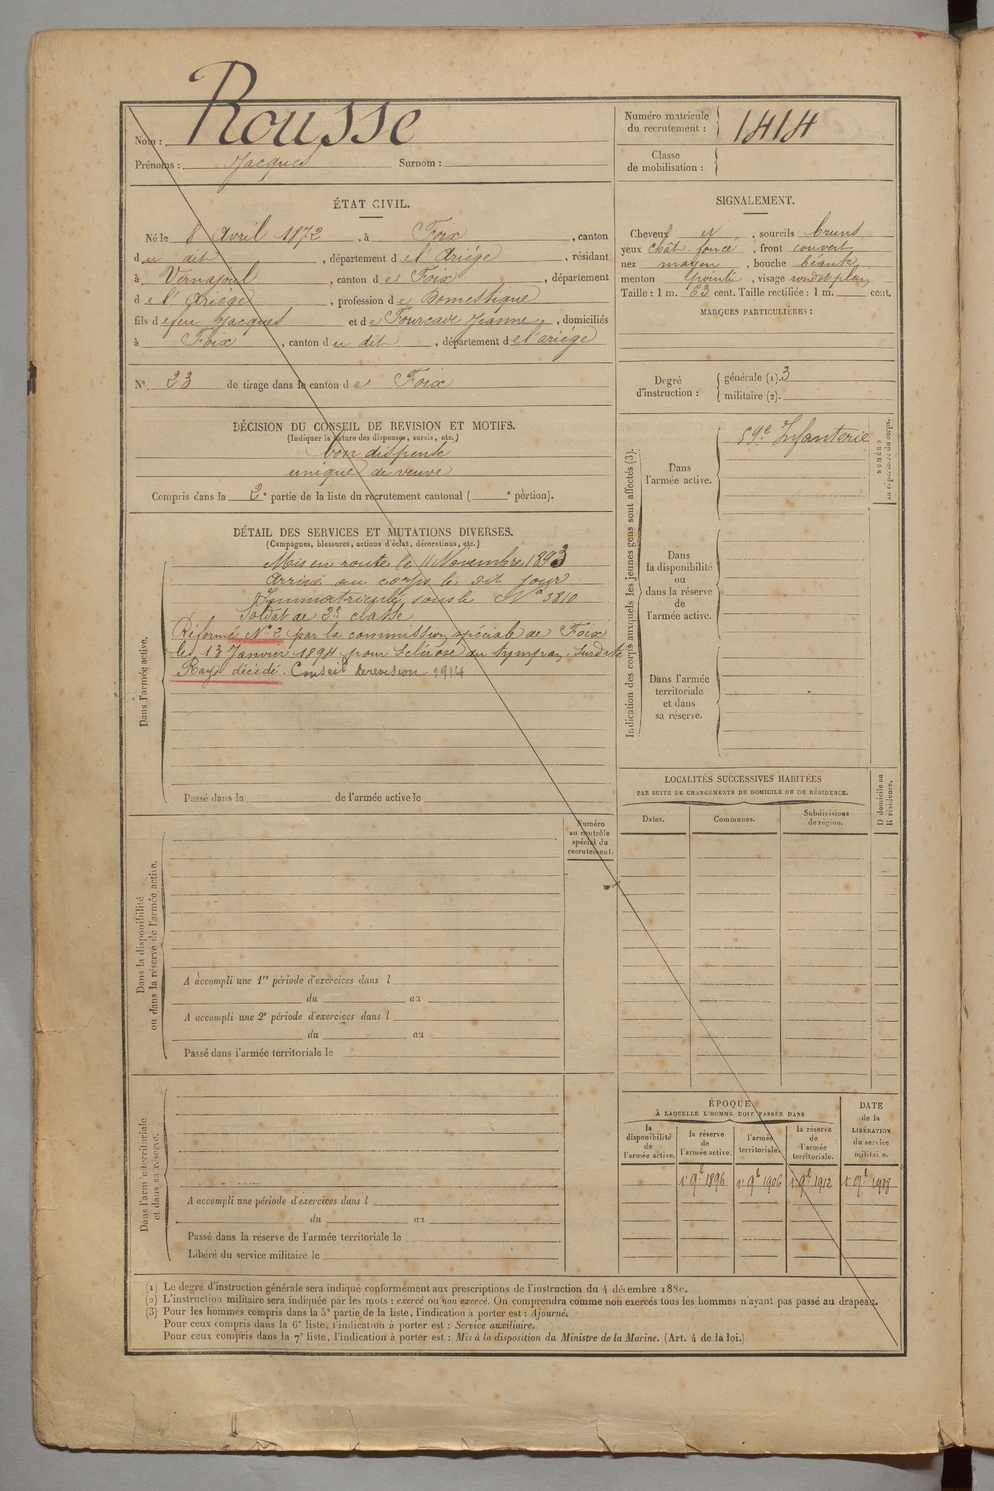 Nom : Rousse
Prénoms : Jacques Surnom :
Numéro matricule
du recrutement : 1414
Classe
de mobilisation :
ÉTAT CIVIL.
Né le 8 Avril 1872, à Foix, canton
du dit, département de l'Ariége, résidant
à Vernajoul, canton de Foix, département
de l'Ariége, profession de Domestique
fils de feu Jacques et de Fourcade Jeanne, domiciliés
à Foix, canton du dit, département de l'ariége
N° 23 de tirage dans le canton de Foix
SIGNALEMENT.
Cheveux N, sourcils bruns
yeux chât. foncé, front couvert
nez moyen, bouche béante,
menton pointu, visage rond et plein
Taille : 1 m. 63 cent. Taille rectifiée : 1 m. cent.
MARQUES PARTICULIÈRES :
Degré
d'instruction :
générale (1). 3
militaire (2).
DÉCISION DU CONSEIL DE REVISION ET MOTIFS.
(Indiquer la nature des dispenses, sursis, etc.)
bon dispensé
unique de veuve
Compris dans la 2e partie de la liste du recrutement cantonal ( e portion).
DÉTAIL DES SERVICES ET MUTATIONS DIVERSES.
(Campagnes, blessures, actions d'éclat, décorations, etc.)
Dans l'armée active.
Mis en route le 11 Novembre 1893
Arrivé au corps le dit jour
Immatriculé sous le N° 3810
Soldat de 2e classe
Réformé N° 2 par la commission spéciale de Foix
le 13 Janvier 1894 pour Sclérose du tympan, Surdité
Rayé décédé. Conseil de revision 1914
Passé dans la de l'armée active le
Indication des corps auxquels les jeunes gens sont affectés (3).
Dans
l'armée active.
59e Infanterie
NUMÉRO
au répertoire du corps.
Dans
la disponibilité
ou
dans la réserve
de
l'armée active.
Dans l'armée
territoriale
et dans
sa réserve.
LOCALITÉS SUCCESSIVES HABITÉES
PAR SUITE DE CHANGEMENTS DE DOMICILE OU DE RÉSIDENCE.
Dates.
Communes.
Subdivisions
de région.
D domicile ou
R résidence.
Numéro
au contrôle
spécial du
recrutement.
Dans la disponibilité
ou dans la réserve de l'armée active.
A accompli une 1re période d'exercices dans l
du au
A accompli une 2e période d'exercices dans l
du au
Passé dans l'armée territoriale le
Dans l'armée territoriale
et dans sa réserve.
A accompli une période d'exercices dans l
du au
Passé dans la réserve de l'armée territoriale le
Libéré du service militaire le
ÉPOQUE
À LAQUELLE L'HOMME DOIT PASSER DANS
la
disponibilité
de
l'armée active.
la réserve
de
l'armée active.
l'armée
territoriale.
la réserve
de
l'armée
territoriale.
DATE
de la
LIBÉRATION
du service
militaire.
1 9e 1896 1 9e 1906 1 9e 1912 1 9e 1918
(1) Le degré d'instruction générale sera indiqué conformément aux prescriptions de l'instruction du 4 décembre 1889.
(2) L'instruction militaire sera indiquée par les mots : exercé ou non exercé. On comprendra comme non exercés tous les hommes n'ayant pas passé au drapeau.
(3) Pour les hommes compris dans la 5e partie de la liste, l'indication à porter est : Ajourné.
Pour ceux compris dans la 6e liste, l'indication à porter est : Service auxiliaire.
Pour ceux compris dans la 7e liste, l'indication à porter est : Mis à la disposition du Ministre de la Marine. (Art. 4 de la loi.)